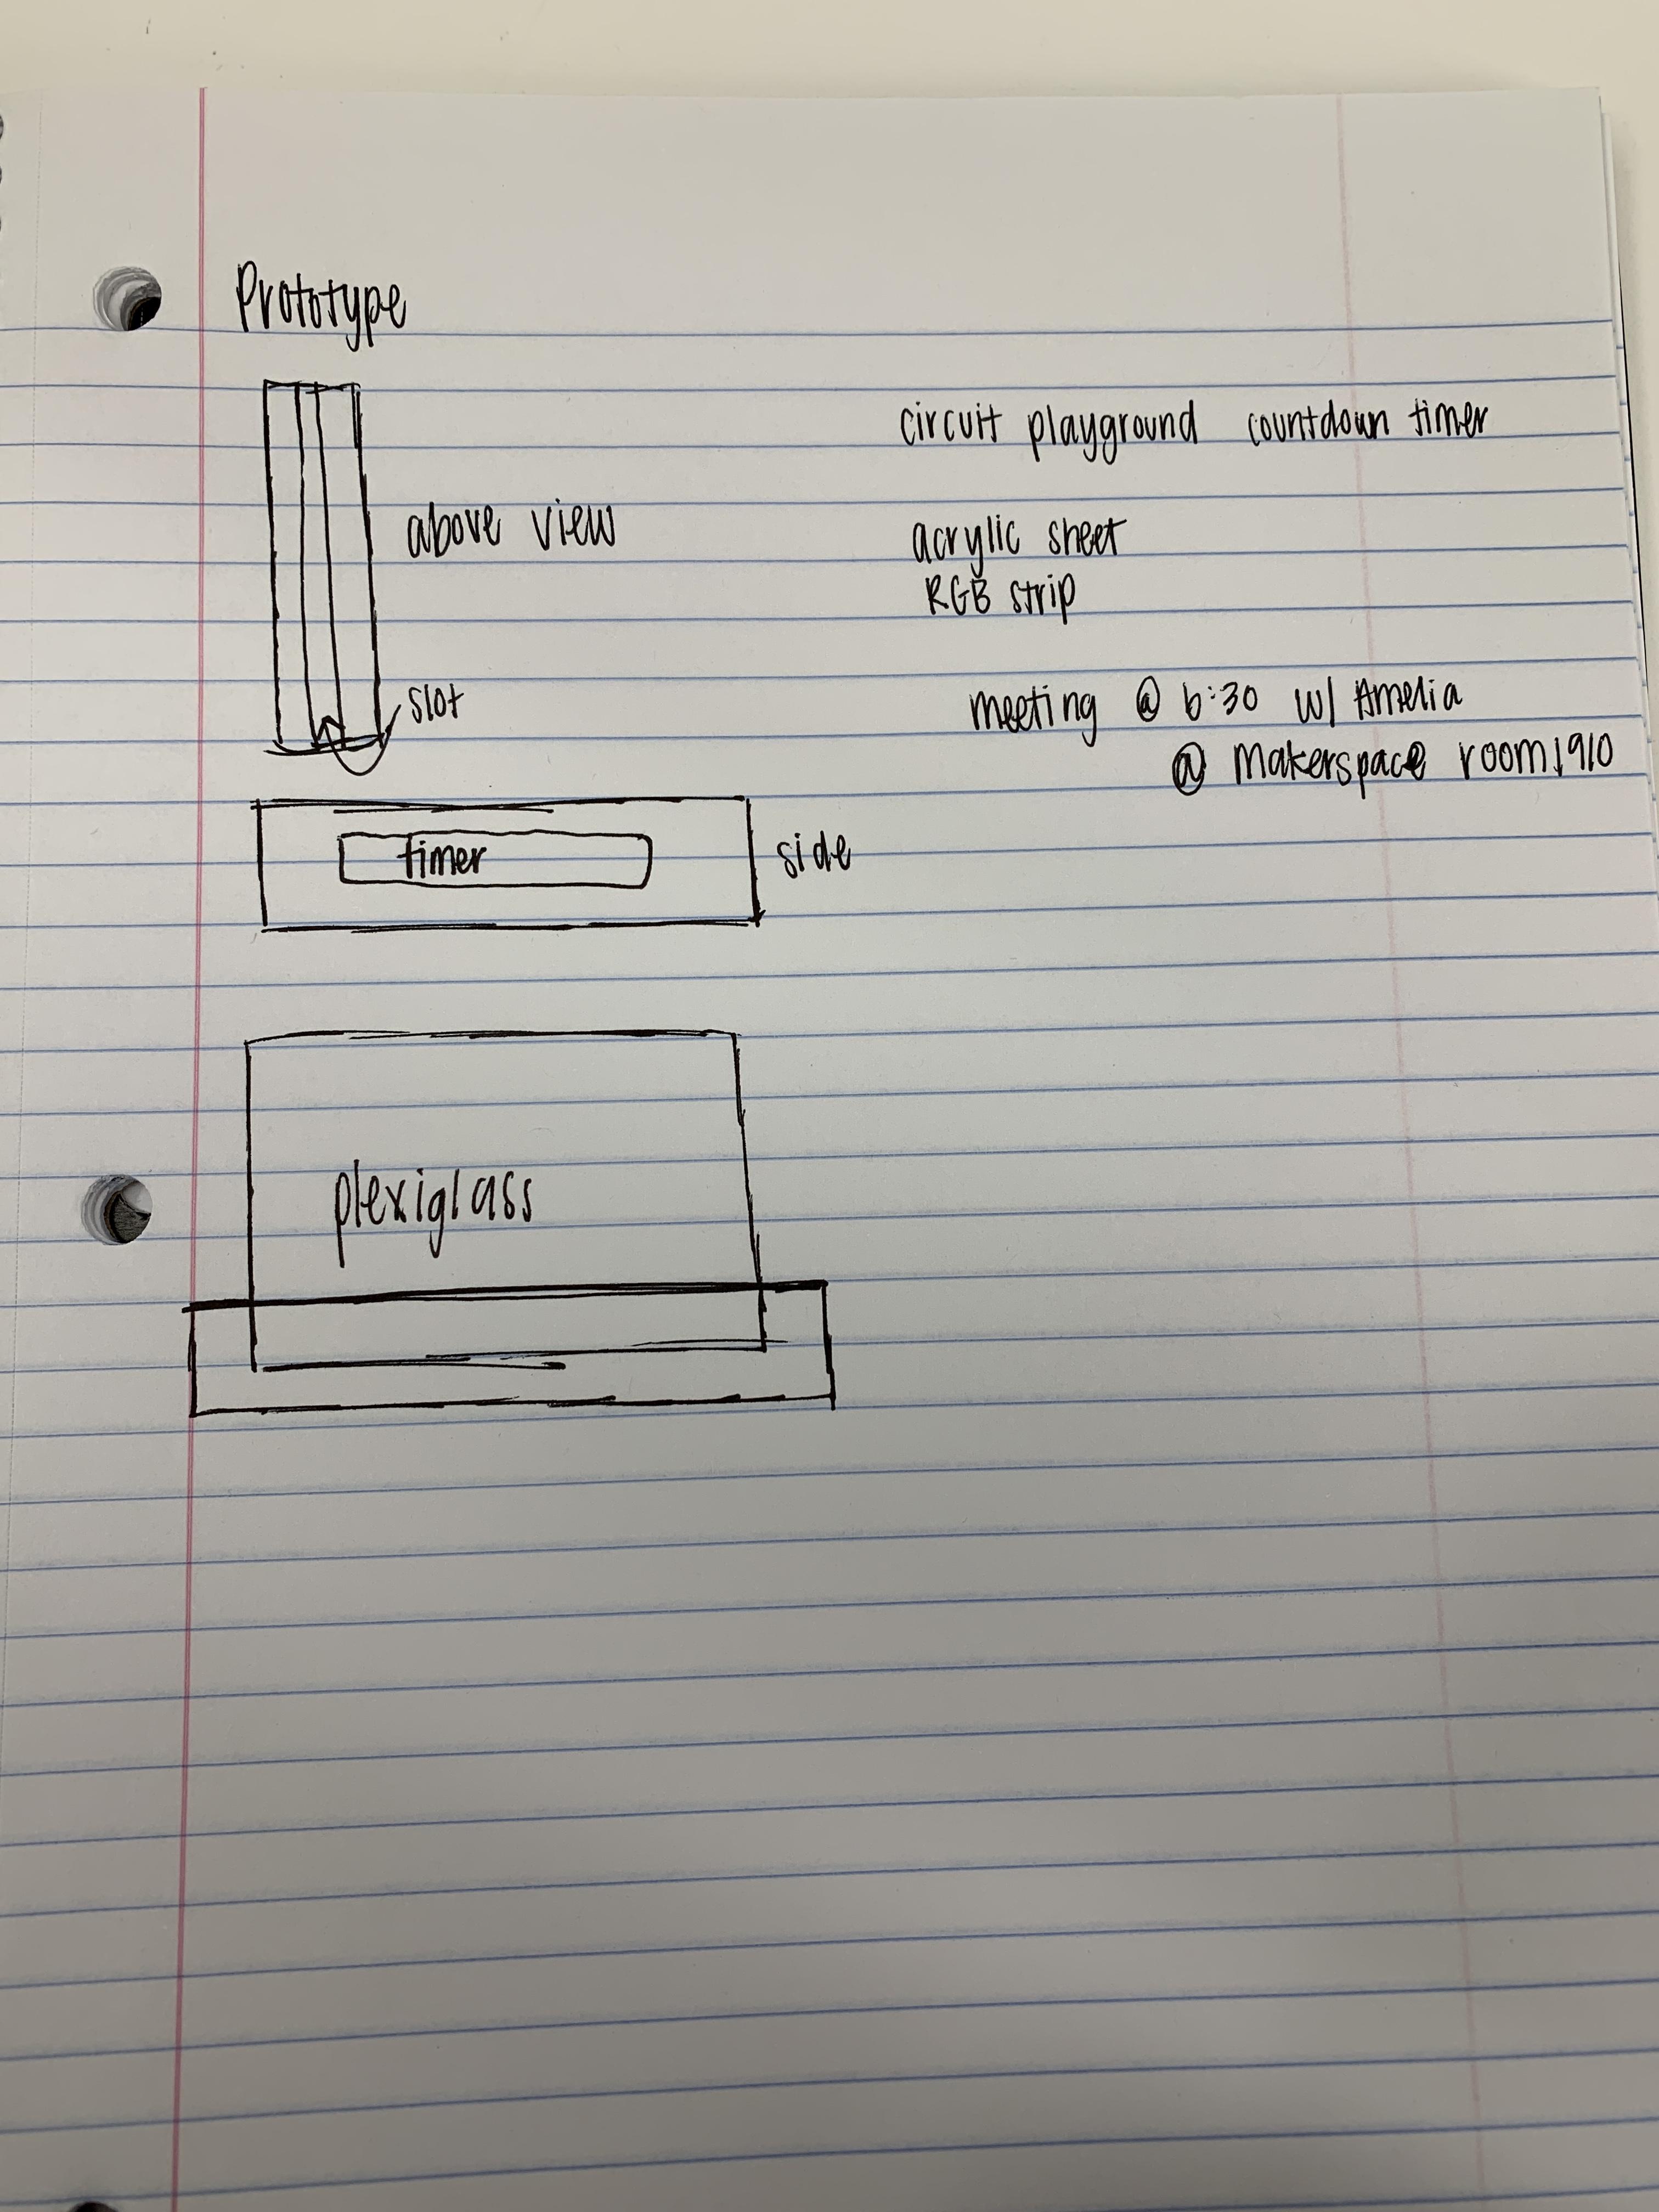 Prototype
circuit playground countdown timer
above view
acrylic sheet
RGB strip
slot
meeting @ 6:30 w/ Amelia
@ Makerspace room 1910
timer
side
plexiglass